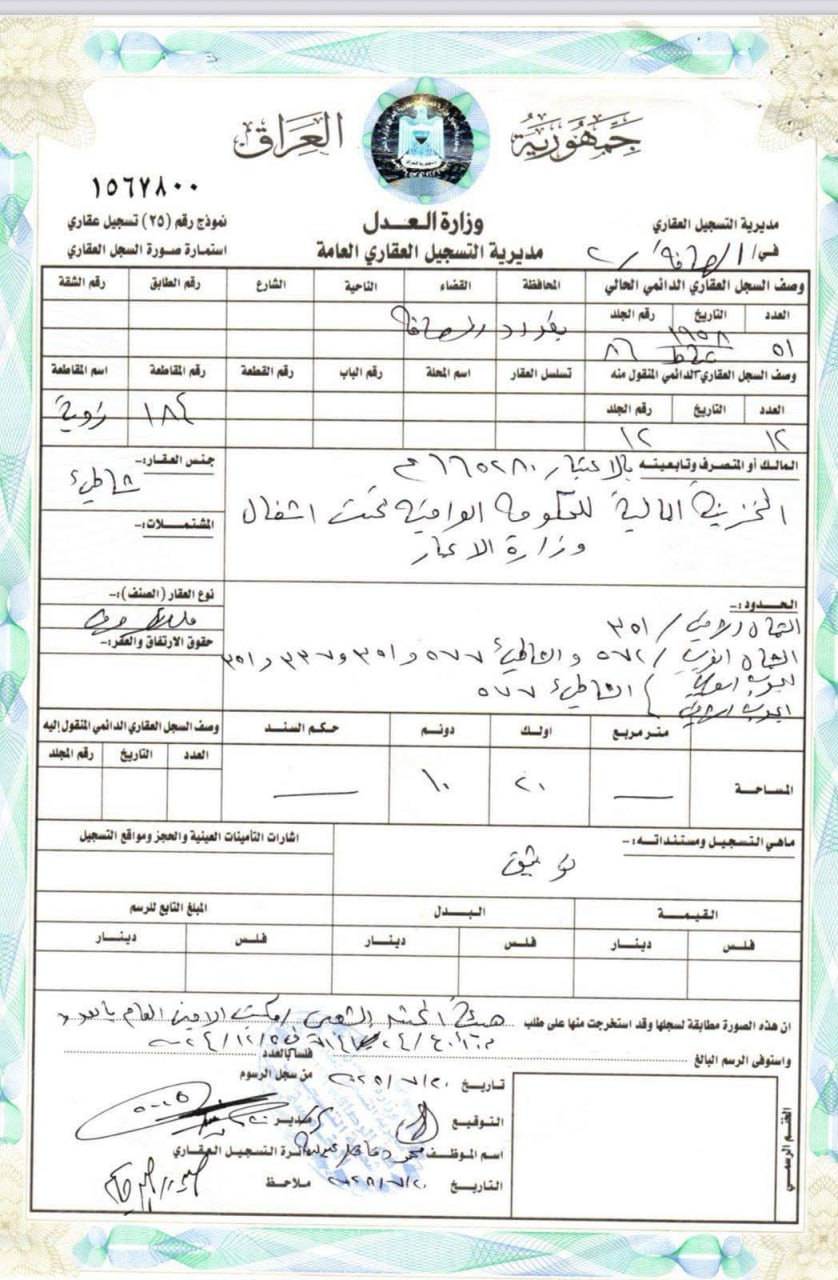 جمهورية العراق
١٥٦٧٨٠٠
وزارة العدل
مديرية التسجيل العقاري العامة
مديرية التسجيل العقاري
في/ الرصافة/٢
نموذج رقم (٢٥) تسجيل عقاري
استمارة صورة السجل العقاري
وصف السجل العقاري الدائمي الحالي المحافظة القضاء الناحية الشارع رقم الطابق رقم الشقة
العدد التاريخ رقم الجلد
بغداد الرصافة
٥١ ١٩٥٨ ٨٦
وصف السجل العقاري الدائمي المنقول منه تسلسل العقار اسم المحلة رقم الباب رقم القطعة رقم المقاطعة اسم المقاطعة
العدد التاريخ رقم الجلد
١٢ ١٢ ١٨٤ زوية
المالك أو المتصرف وتابعيته :- بالاعتبار ٦٦٥٢٨٠
الخزينة المالية للحكومة العراقية تحت اشغال
وزارة الاعمار
جنس العقار:-
شاطئ
المشتملات:-
نوع العقار (الصنف):-
حقوق الارتفاق والعقر:-
الحدود:-
الشمال الشرقي / ٣٥١
الشمال الغربي / ٥٧٢ والشاطئ ٥٧٧ و ٣٥١ و ٣٣٧ و ٣٥١
الجنوب الغربي
الجنوب الشرقي } الشاطئ ٥٧٧
متر مربع اولك دونم حكم السند وصف السجل العقاري الدائمي المنقول إليه
العدد التاريخ رقم المجلد
المساحة — ٢٠ ١٠ —
ماهي التسجيل ومستنداته:- اشارات التأمينات العينية والحجز ومواقع التسجيل
توثيق
القيمة البدل المبلغ التابع للرسم
فلس دينار فلس دينار فلس دينار
ان هذه الصورة مطابقة لسجلها وقد استخرجت منها على طلب هيئة الحشد الشعبي / مكتب الامين العام بالعدد
واستوفى الرسم البالغ فلسا بالعدد
تاريخ ٢٠/٧/٢٠٢٥ من سجل الرسوم
التوقيع مدير
اسم الموظف محمود دائرة التسجيل العقاري
التاريخ ٢٠/٧/٢٠٢٥ ملاحظ
الختم الرسمي